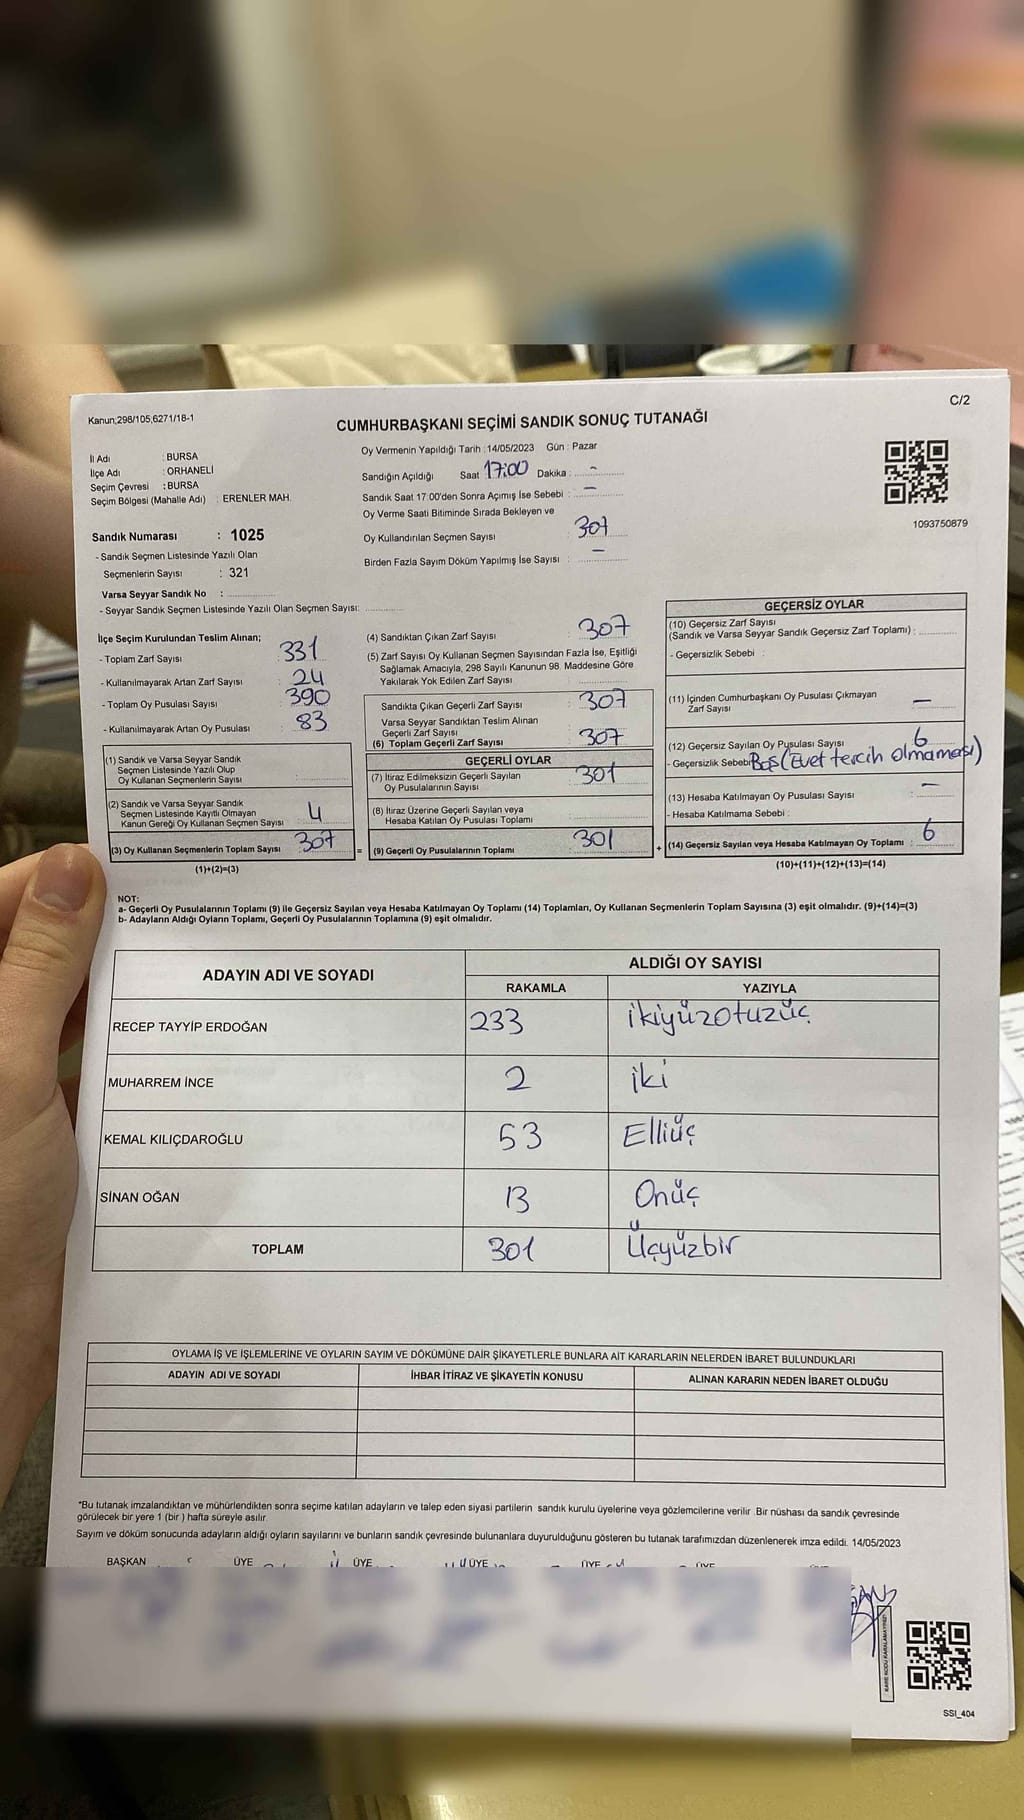 Kanun;298/105;6271/18-1
C/2
CUMHURBAŞKANI SEÇİMİ SANDIK SONUÇ TUTANAĞI
İl Adı : BURSA
İlçe Adı : ORHANELİ
Seçim Çevresi : BURSA
Seçim Bölgesi (Mahalle Adı) : ERENLER MAH.
Sandık Numarası : 1025
- Sandık Seçmen Listesinde Yazılı Olan
Seçmenlerin Sayısı : 321
Varsa Seyyar Sandık No :
- Seyyar Sandık Seçmen Listesinde Yazılı Olan Seçmen Sayısı:
Oy Vermenin Yapıldığı Tarih : 14/05/2023 Gün : Pazar
Sandığın Açıldığı Saat 17:00 Dakika : –
Sandık Saat 17:00'den Sonra Açımış İse Sebebi : –
Oy Verme Saati Bitiminde Sırada Bekleyen ve
Oy Kullandırılan Seçmen Sayısı : 307
Birden Fazla Sayım Döküm Yapılmış İse Sayısı : –
1093750879
İlçe Seçim Kurulundan Teslim Alınan;
- Toplam Zarf Sayısı : 331
- Kullanılmayarak Artan Zarf Sayısı : 24
- Toplam Oy Pusulası Sayısı : 390
- Kullanılmayarak Artan Oy Pusulası : 83
(1) Sandık ve Varsa Seyyar Sandık
Seçmen Listesinde Yazılı Olup
Oy Kullanan Seçmenlerin Sayısı :
(2) Sandık ve Varsa Seyyar Sandık
Seçmen Listesinde Kayıtlı Olmayan
Kanun Gereği Oy Kullanan Seçmen Sayısı : 4
(3) Oy Kullanan Seçmenlerin Toplam Sayısı : 307
(1)+(2)=(3)
(4) Sandıktan Çıkan Zarf Sayısı : 307
(5) Zarf Sayısı Oy Kullanan Seçmen Sayısından Fazla İse, Eşitliği
Sağlamak Amacıyla, 298 Sayılı Kanunun 98. Maddesine Göre
Yakılarak Yok Edilen Zarf Sayısı :
Sandıkta Çıkan Geçerli Zarf Sayısı : 307
Varsa Seyyar Sandıktan Teslim Alınan
Geçerli Zarf Sayısı :
(6) Toplam Geçerli Zarf Sayısı : 307
GEÇERLİ OYLAR
(7) İtiraz Edilmeksizin Geçerli Sayılan
Oy Pusulalarının Sayısı : 301
(8) İtiraz Üzerine Geçerli Sayılan veya
Hesaba Katılan Oy Pusulası Toplamı :
= (9) Geçerli Oy Pusulalarının Toplamı : 301
GEÇERSİZ OYLAR
(10) Geçersiz Zarf Sayısı
(Sandık ve Varsa Seyyar Sandık Geçersiz Zarf Toplamı) :
- Geçersizlik Sebebi :
(11) İçinden Cumhurbaşkanı Oy Pusulası Çıkmayan
Zarf Sayısı –
(12) Geçersiz Sayılan Oy Pusulası Sayısı : 6
- Geçersizlik Sebebi Boş (Evet tercih olmaması)
(13) Hesaba Katılmayan Oy Pusulası Sayısı : –
- Hesaba Katılmama Sebebi :
+ (14) Geçersiz Sayılan veya Hesaba Katılmayan Oy Toplamı : 6
(10)+(11)+(12)+(13)=(14)
NOT:
a- Geçerli Oy Pusulalarının Toplamı (9) ile Geçersiz Sayılan veya Hesaba Katılmayan Oy Toplamı (14) Toplamları, Oy Kullanan Seçmenlerin Toplam Sayısına (3) eşit olmalıdır. (9)+(14)=(3)
b- Adayların Aldığı Oyların Toplamı, Geçerli Oy Pusulalarının Toplamına (9) eşit olmalıdır.
ADAYIN ADI VE SOYADI
ALDIĞI OY SAYISI
RAKAMLA YAZIYLA
RECEP TAYYİP ERDOĞAN 233 ikiyüzotuzüç
MUHARREM İNCE 2 iki
KEMAL KILIÇDAROĞLU 53 Elliüç
SİNAN OĞAN 13 Onüç
TOPLAM 301 Üçyüzbir
OYLAMA İŞ VE İŞLEMLERİNE VE OYLARIN SAYIM VE DÖKÜMÜNE DAİR ŞİKAYETLERLE BUNLARA AİT KARARLARIN NELERDEN İBARET BULUNDUKLARI
ADAYIN ADI VE SOYADI İHBAR İTİRAZ VE ŞİKAYETİN KONUSU ALINAN KARARIN NEDEN İBARET OLDUĞU
*Bu tutanak imzalandıktan ve mühürlendikten sonra seçime katılan adayların ve talep eden siyasi partilerin sandık kurulu üyelerine veya gözlemcilerine verilir. Bir nüshası da sandık çevresinde
görülecek bir yere 1 (bir) hafta süreyle asılır.
Sayım ve döküm sonucunda adayların aldığı oyların sayılarını ve bunların sandık çevresinde bulunanlara duyurulduğunu gösteren bu tutanak tarafımızdan düzenlenerek imza edildi. 14/05/2023
BAŞKAN ÜYE ÜYE ÜYE ÜYE ÜYE
SSI_404